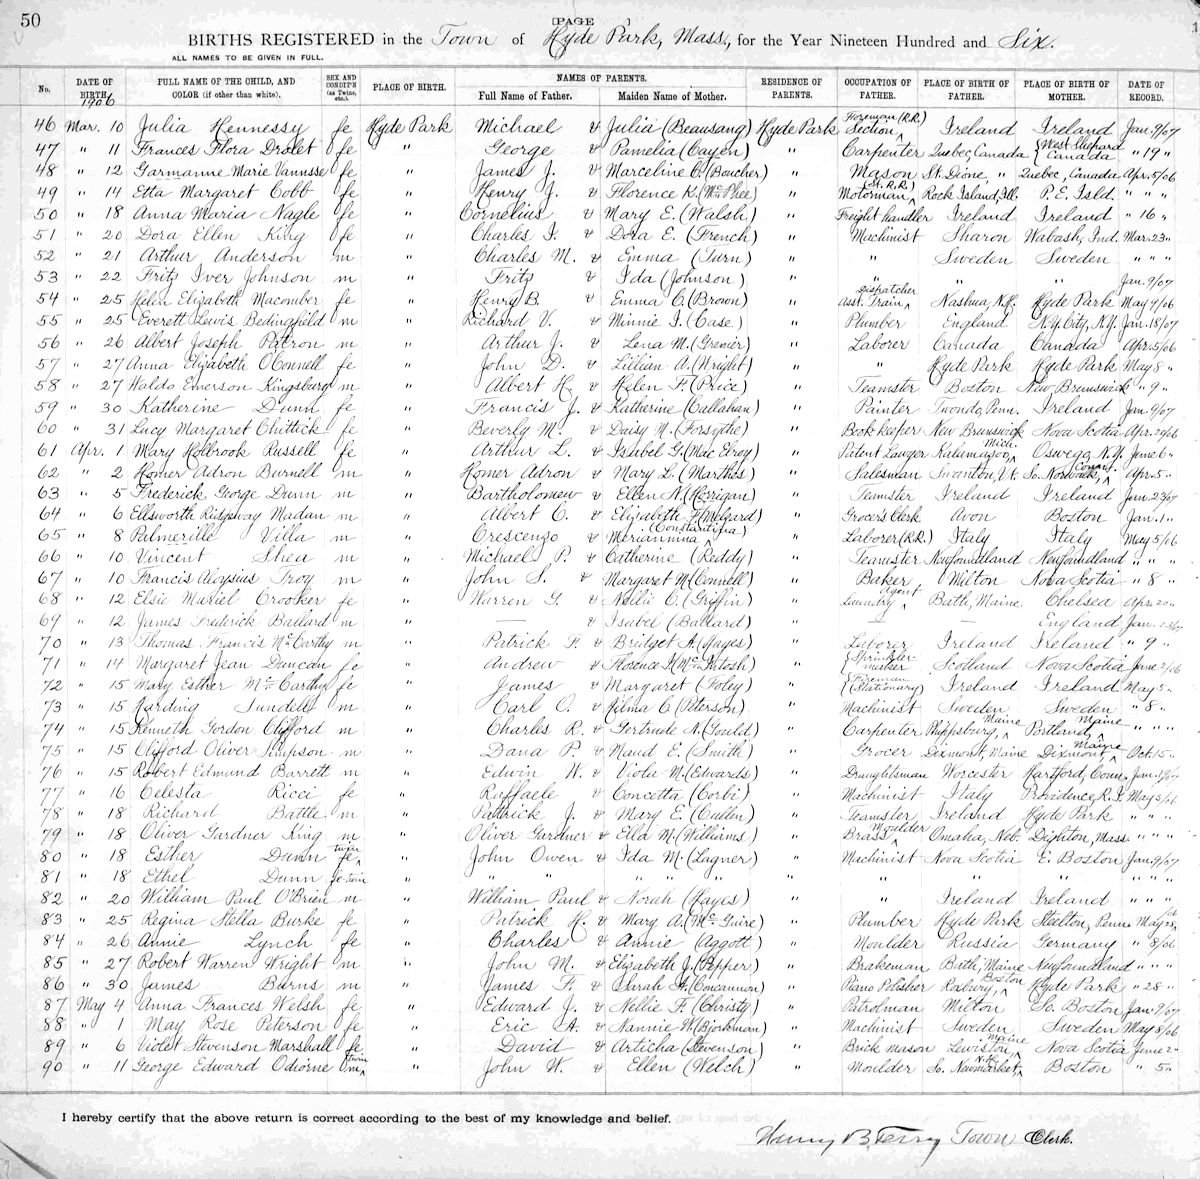 50
[PAGE ]
BIRTHS REGISTERED in the Town of Hyde Park, Mass., for the Year Nineteen Hundred and Six.
ALL NAMES TO BE GIVEN IN FULL.
No. DATE OF BIRTH. 1906 FULL NAME OF THE CHILD, AND COLOR (if other than white). SEX AND CONDIT'N (as Twins, etc.). PLACE OF BIRTH. NAMES OF PARENTS. Full Name of Father. Maiden Name of Mother. RESIDENCE OF PARENTS. OCCUPATION OF FATHER. PLACE OF BIRTH OF FATHER. PLACE OF BIRTH OF MOTHER. DATE OF RECORD.
46 Mar. 10 Julia Hennessy fe Hyde Park Michael & Julia (Beausang) Hyde Park Foreman (R.R.) Section Ireland Ireland Jan. 9/07
47 " 11 Frances Flora Drolet fe " George & Pamelia (Cayen) " Carpenter Quebec, Canada West Shepard Canada " 19 "
48 " 12 Garmanne Marie Vannsse fe " James J. & Marceline C. (Boucher) " Mason St. Dione " Quebec, Canada Apr. 5/06
49 " 14 Etta Margaret Cobb fe " Henry J. & Florence K. (McPhee) " Motorman (St. R.R.) Rock Island, Ill. P. E. Isld. " "
50 " 18 Anna Maria Nagle fe " Cornelius & Mary E. (Walsh) " Freight handler Ireland Ireland " 16 "
51 " 20 Dora Ellen King fe " Charles I. & Dora E. (French) " Machinist Sharon Wabash, Ind. Mar. 23 "
52 " 21 Arthur Anderson m " Charles M. & Emma (Turn) " " Sweden Sweden " " "
53 " 22 Fritz Iver Johnson m " Fritz & Ida (Johnson) " " " " Jan. 9/07
54 " 25 Helen Elizabeth Macomber fe " Henry B. & Emma C. (Brown) " Asst. Train dispatcher Nashua, N.H. Hyde Park May 9/06
55 " 25 Everett Lewis Bedingfield m " Richard V. & Minnie I. (Case) " Plumber England N.Y. City, N.Y. Jan. 18/07
56 " 26 Albert Joseph Patron m " Arthur J. & Lena M. (Grenier) " Laborer Canada Canada Apr. 5/06
57 " 27 Anna Elizabeth O'Connell fe " John D. & Lillian A. (Wright) " " Hyde Park Hyde Park May 8 "
58 " 27 Waldo Emerson Kingsbury m " Albert H. & Helen F. (Price) " Teamster Boston New Brunswick " 9 "
59 " 30 Katherine Dunn fe " Francis J. & Katherine (Callahan) " Painter Twondo, Penn. Ireland Jan. 9/07
60 " 31 Lucy Margaret Chittick fe " Beverly M. & Daisy M. (Forsythe) " Bookkeeper New Brunswick Nova Scotia Apr. 24/06
61 Apr. 1 Mary Holbrook Russell fe " Arthur L. & Isabel G. (MacElroy) " Patent Lawyer Kalamazoo, Mich. Oswego, N.Y. June 6 "
62 " 2 Homer Adron Burnell m " Homer Adron & Mary L. (Marthis) " Salesman Swanton, Vt. So. Norwalk, Conn. Apr. 5 "
63 " 5 Frederick George Dunn m " Bartholomew & Ellen N. (Horrigan) " Teamster Ireland Ireland Jan. 23/07
64 " 6 Ellsworth Ridgeway Madan m " Albert C. & Elizabeth F. (Melgard) " Grocer's Clerk Avon Boston Jan. 1 "
65 " 8 Palmerille Villa m " Crescenzo & Meriannina (Constantina) " Laborer (R.R.) Italy Italy May 5/06
66 " 10 Vincent Shea m " Michael P. & Catherine (Reddy) " Teamster Newfoundland Newfoundland " " "
67 " 10 Francis Aloysius Troy m " John S. & Margaret M. (Connell) " Baker Milton Nova Scotia " 8 "
68 " 12 Elsie Mariel Crooker fe " Warren G. & Nellie C. (Griffin) " Laundry agent Bath, Maine Chelsea Apr. 20 "
69 " 12 James Frederick Ballard m " — & Isabel (Ballard) " — — England Jan. 23/07
70 " 13 Thomas Francis McCarthy m " Patrick F. & Bridget A. (Hayes) " Laborer Ireland Ireland " 9 "
71 " 14 Margaret Jean Duncan fe " Andrew & Florence I. (McIntosh) " Sprinkler maker Scotland Nova Scotia June 2/06
72 " 15 Mary Esther McCarthy fe " James & Margaret (Foley) " Fireman (Stationary) Ireland Ireland May 5 "
73 " 15 Harding Sundell m " Carl O. & Hilma C. (Peterson) " Machinist Sweden Sweden " 8 "
74 " 15 Kenneth Gordon Clifford m " Charles R. & Gertrude N. (Gould) " Carpenter Phippsburg, Maine Portland, Maine " " "
75 " 15 Clifford Oliver Simpson m " Dana P. & Maud E. (Smith) " Grocer Dixmont, Maine Dixmont, Maine Oct. 15 "
76 " 15 Robert Edmund Barrett m " Edwin W. & Viola M. (Edwards) " Draughtsman Worcester Hartford, Conn.
77 " 16 Celesta Ricci fe " Raffaele & Concetta (Corbi) " Machinist Italy Providence, R.I. May 5/06
78 " 18 Richard Battle m " Patrick J. & Mary E. (Cullen) " Teamster Ireland Hyde Park " " "
79 " 18 Oliver Gardner King m " Oliver Gardner & Ella M. (Williams) " Brass Moulder Omaha, Neb. Dighton, Mass. " " "
80 " 18 Esther Dunn fe twin " John Owen & Ida M. (Lagner) " Machinist Nova Scotia E. Boston Jan. 9/07
81 " 18 Ethel Dunn fe twin " " " " " " " " " " " " "
82 " 20 William Paul O'Brien m " William Paul & Norah (Hayes) " " Ireland Ireland " " "
83 " 25 Regina Stella Burke fe " Patrick H. & Mary A. (McGuire) " Plumber Hyde Park Stelton, Penn. May 28/06
84 " 26 Annie Lynch fe " Charles & Annie (Aggott) " Moulder Russia Germany " 8/06
85 " 27 Robert Warren Wright m " John M. & Elizabeth J. (Pepper) " Brakeman Bath, Maine Newfoundland " " "
86 " 30 James Burns m " James F. & Sarah A. (Concannon) " Piano Polisher Roxbury, Boston Hyde Park " 28 "
87 May 4 Anna Frances Welsh fe " Edward J. & Nellie F. (Christy) " Patrolman Milton So. Boston Jan. 9/07
88 " 1 May Rose Peterson fe " Eric A. & Nannie W. (Bjorkman) " Machinist Sweden Sweden May 8/06
89 " 6 Violet Stevenson Marshall fe " David & Articha (Stevenson) " Brick mason Lewiston, Maine Nova Scotia June 2 "
90 " 11 George Edward Odiorne m twin " John W. & Ellen (Welch) " Moulder So. Newmarket, N.H. Boston " 5 "
I hereby certify that the above return is correct according to the best of my knowledge and belief.
Henry B. Terry Town Clerk.